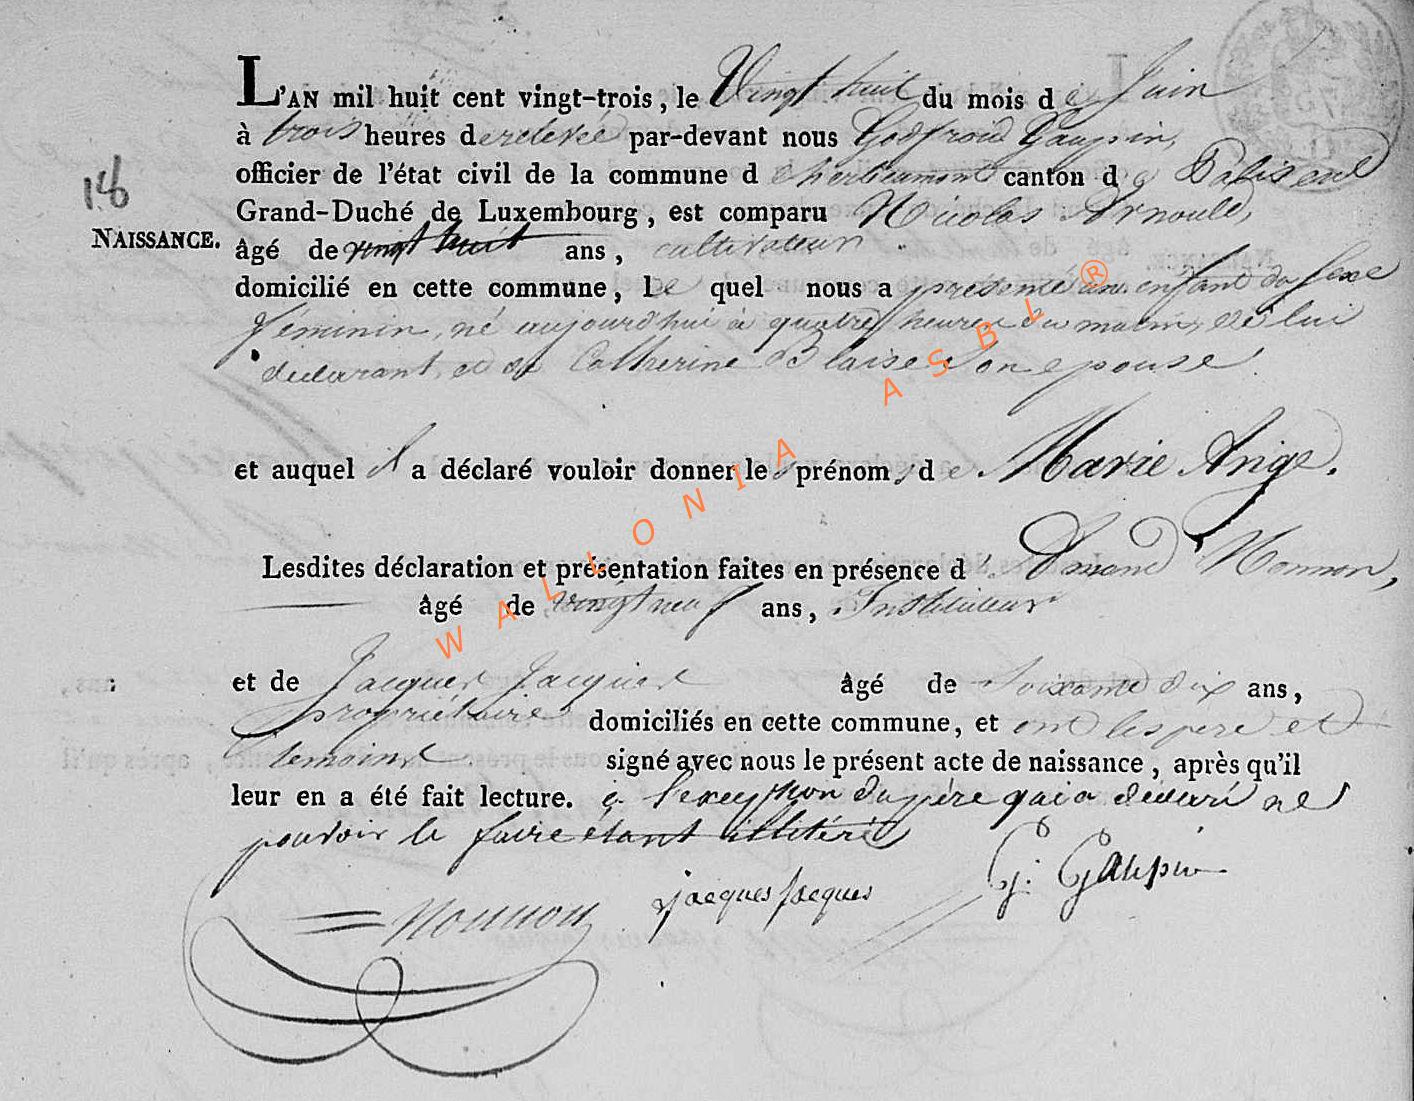 L'AN mil huit cent vingt-trois, le Vingt huit du mois de Juin
à trois heures de relevée par-devant nous Godfroid Gaupin,
officier de l'état civil de la commune d'herbeumont canton de Paliseul
Grand-Duché de Luxembourg, est comparu Nicolas Arnould,
18
NAISSANCE.
âgé de vingt huit ans, cultivateur.
domicilié en cette commune, Lequel nous a présenté un enfant du sexe
féminin, né aujourd'hui à quatre heures du matin, de lui
déclarant, et de Catherine Blaise Son epouse.
et auquel il a déclaré vouloir donner les prénoms de Marie Ange.
Lesdites déclaration et présentation faites en présence d' Amand Nonnon,
âgé de vingt neuf ans, Instituteur
et de Jacques Jacques âgé de Soixante dix ans,
propriétaire domiciliés en cette commune, et ont les père et
temoins signé avec nous le présent acte de naissance, après qu'il
leur en a été fait lecture. à l'exception du père qui a déclaré ne
pouvoir le faire étant illitéré
Nonnon
Jacques Jacques
G. Gaupin
WALLONIA ASBL ®